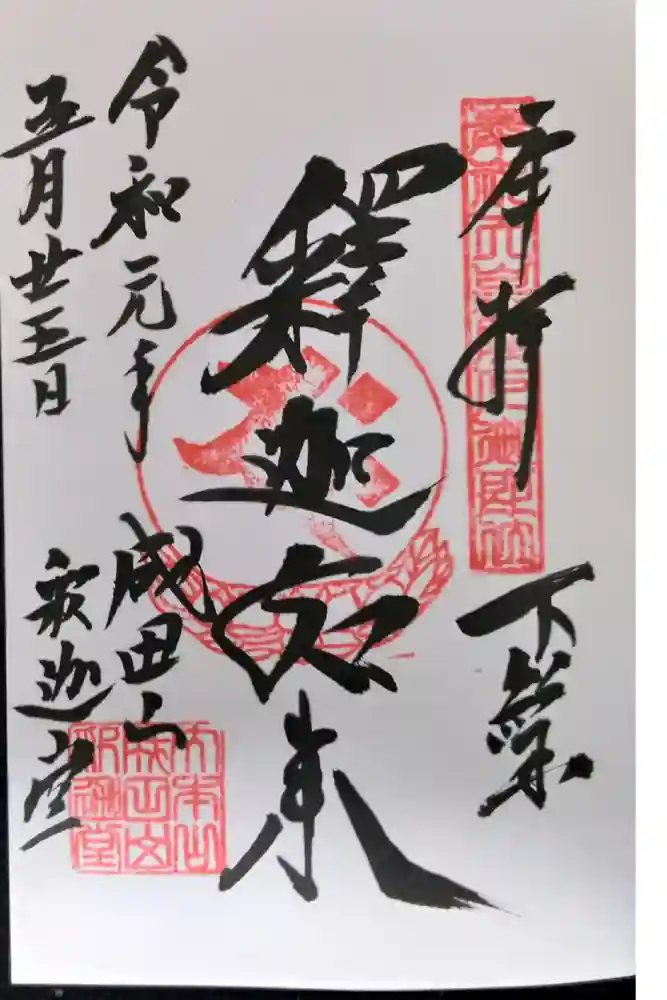 奉拝
下総
釋迦如来
令和元年
五月廿五日
成田山
釈迦堂
大本山
成田山
釈迦堂